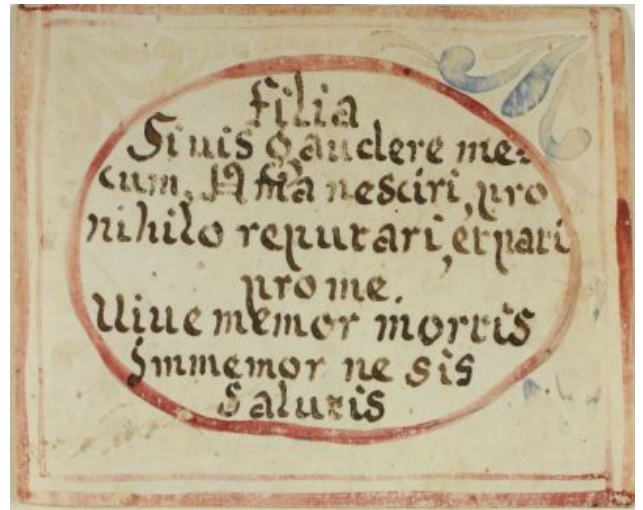 Filia
Si uis gaudere me=
cum, Ama nesciri, pro
nihilo reputari, et pati
pro me.
Uiue memor mortis
Immemor ne sis
Salutis